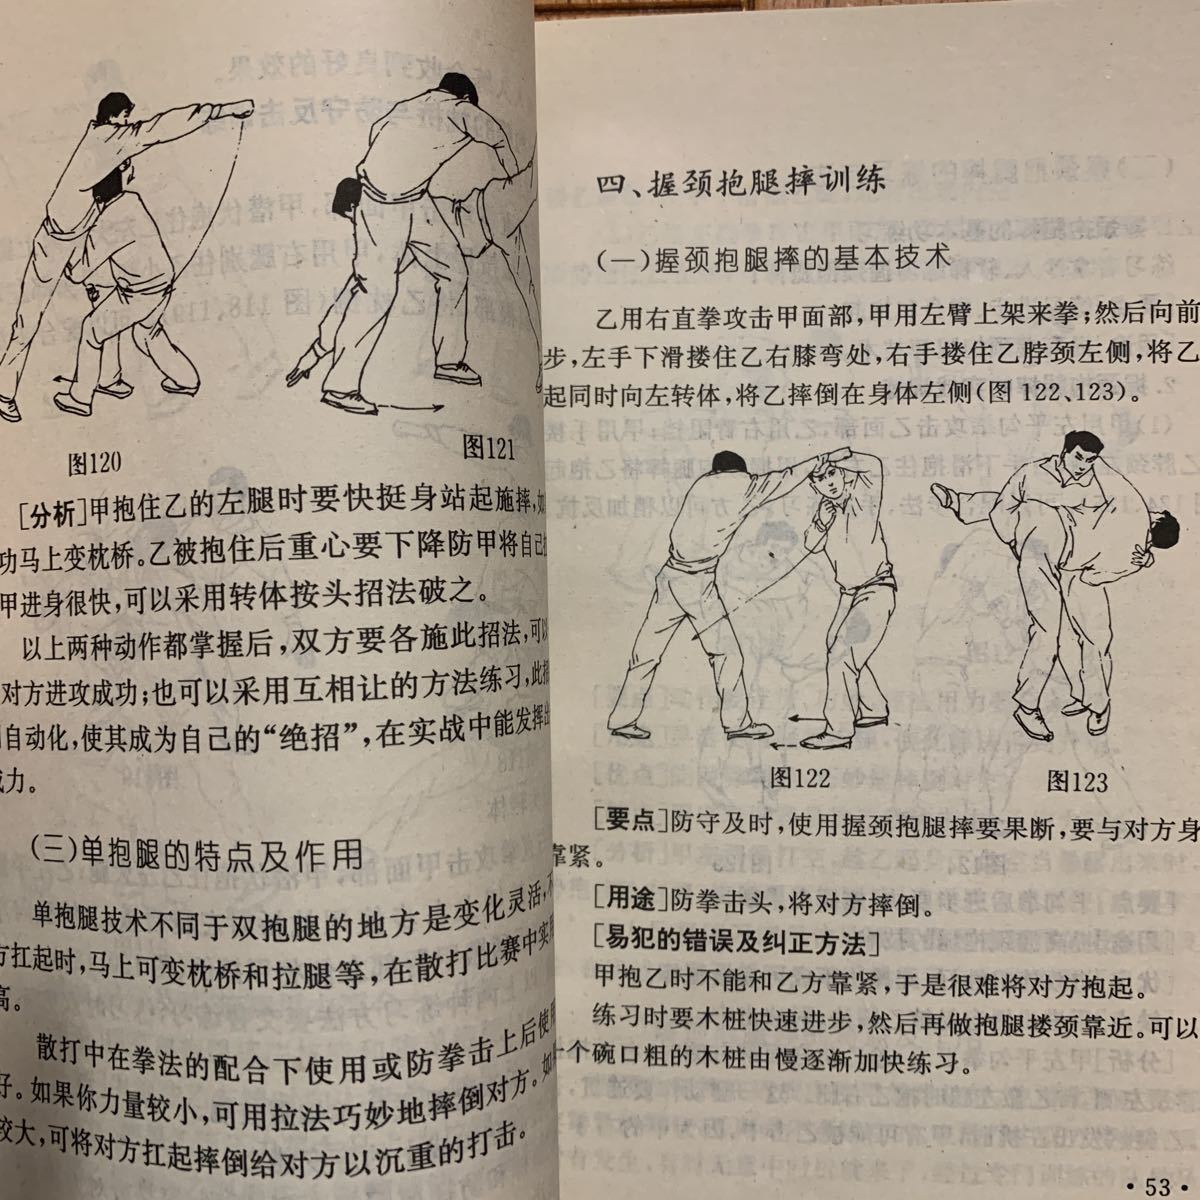 图120
图121
[分析]甲抱住乙的左腿时要快挺身站起施摔,如
功马上变枕桥。乙被抱住后重心要下降防甲将自己
甲进身很快,可以采用转体按头招法破之。
以上两种动作都掌握后,双方要各施此招法,可以
对方进攻成功;也可以采用互相让的方法练习,此招
自动化,使其成为自己的“绝招”,在实战中能发挥出
威力。
(三)单抱腿的特点及作用
单抱腿技术不同于双抱腿的地方是变化灵活,不
方扛起时,马上可变枕桥和拉腿等,在散打比赛中实用
高。
散打中在拳法的配合下使用或防拳击上后使用
好。如果你力量较小,可用拉法巧妙地摔倒对方。如
较大,可将对方扛起摔倒给对方以沉重的打击。
四、握颈抱腿摔训练
(一)握颈抱腿摔的基本技术
乙用右直拳攻击甲面部,甲用左臂上架来拳;然后向前
步,左手下滑搂住乙右膝弯处,右手搂住乙脖颈左侧,将乙
起同时向左转体,将乙摔倒在身体左侧(图122、123)。
图122
图123
[要点]防守及时,使用握颈抱腿摔要果断,要与对方身
靠紧。
[用途]防拳击头,将对方摔倒。
[易犯的错误及纠正方法]
甲抱乙时不能和乙方靠紧,于是很难将对方抱起。
练习时要木桩快速进步,然后再做抱腿搂颈靠近。可以
一个碗口粗的木桩由慢逐渐加快练习。
·53·